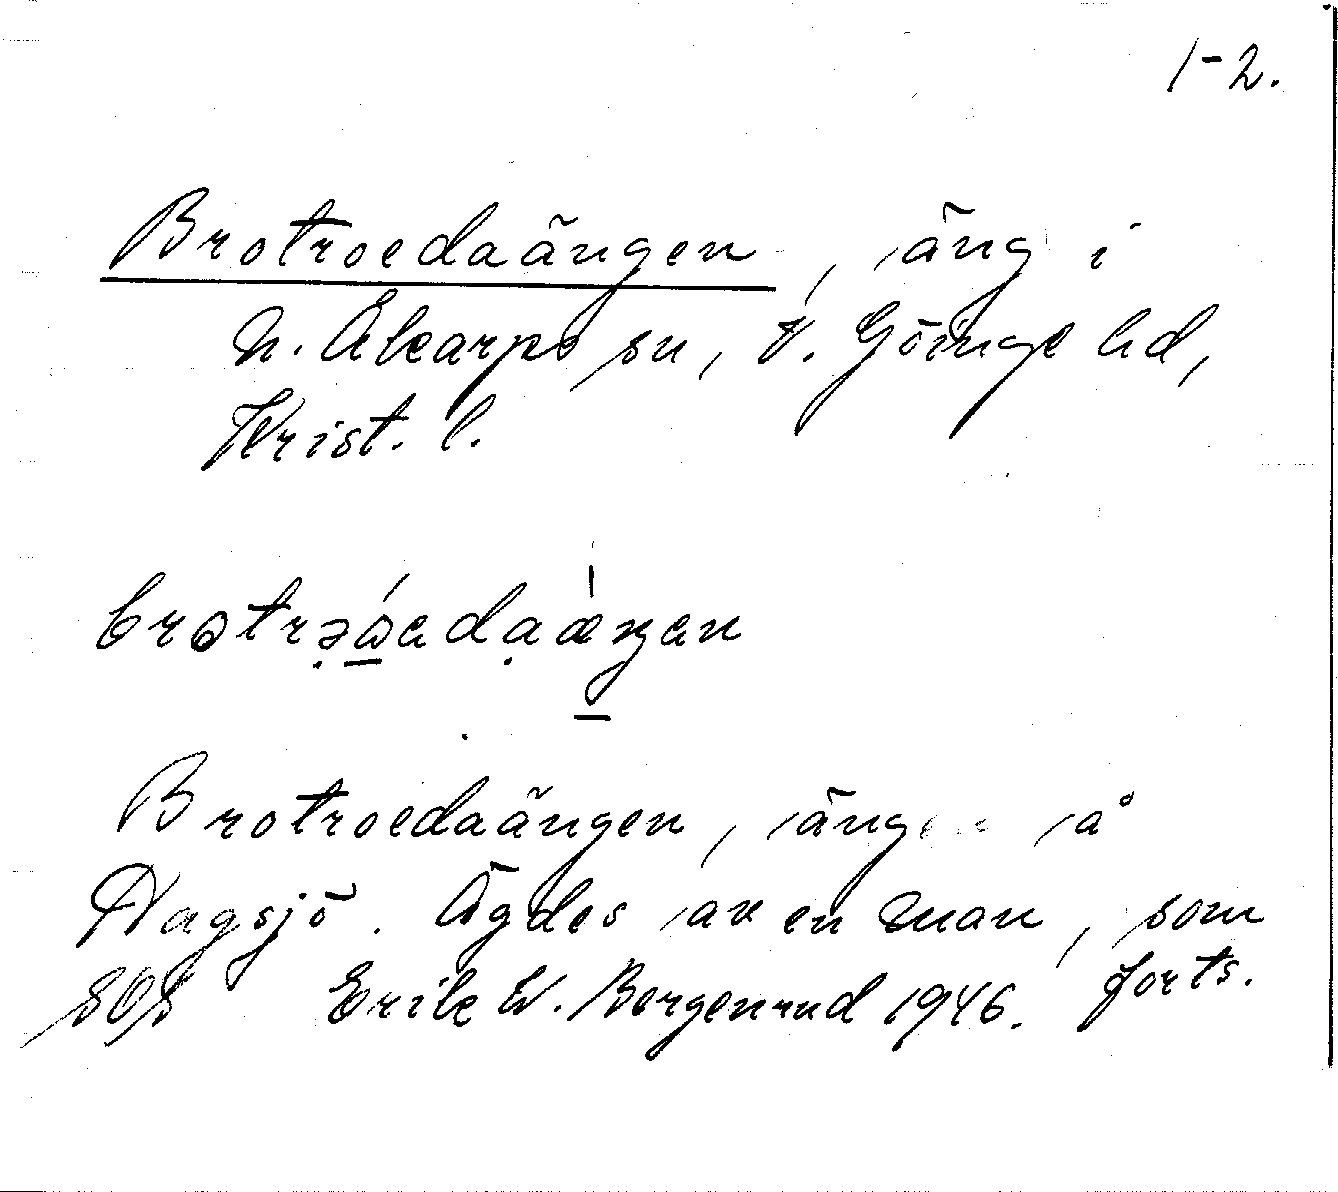 1-2.
Brotroedaängen, äng i
N. Åkarps sn, V. Göinge hd,
Krist. l.
Brotroedaängen, ängen å
Hagsjö. Ägdes av en man, som
SOS Erik W. Borgenrud 1946. forts.